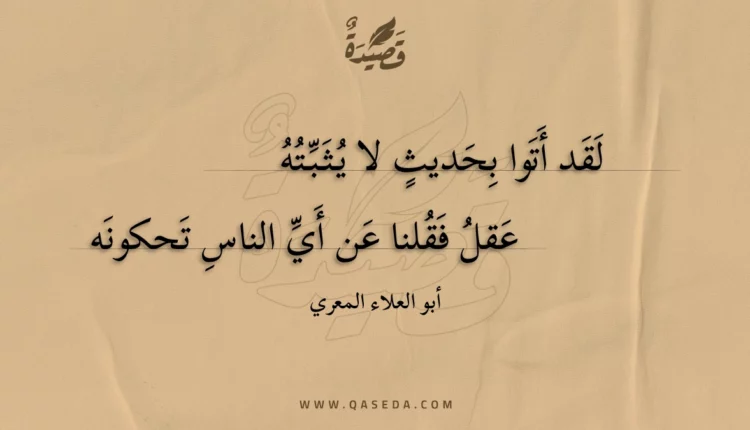 قَصِيدَةٌ
لَقَد أَتَوا بِحَديثٍ لا يُثَبِّتُهُ
عَقلُ فَقُلنا عَن أَيِّ الناسِ تَحكونَه
أبو العلاء المعري
WWW.QASEDA.COM